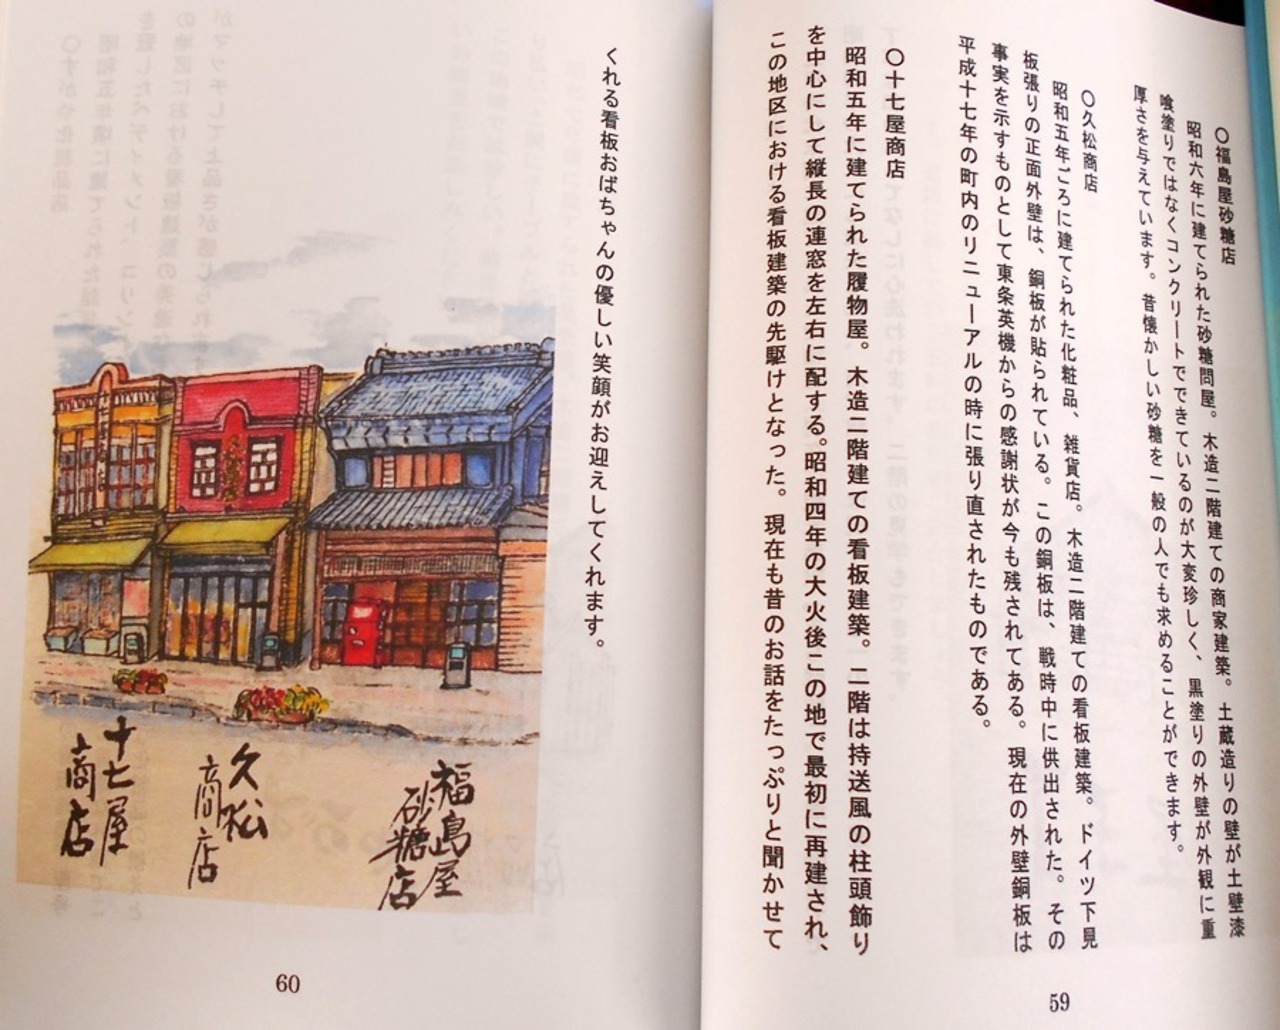 〇福島屋砂糖店
昭和六年に建てられた砂糖問屋。木造二階建ての商家建築。土蔵造りの壁が土壁漆
喰塗りではなくコンクリートでできているのが大変珍しく、黒塗りの外壁が外観に重
厚さを与えています。昔懐かしい砂糖を一般の人でも求めることができます。
〇久松商店
昭和五年ごろに建てられた化粧品、雑貨店。木造二階建ての看板建築。ドイツ下見
板張りの正面外壁は、銅板が貼られている。この銅板は、戦時中に供出された。その
事実を示すものとして東条英機からの感謝状が今も残されてある。現在の外壁銅板は
平成十七年の町内のリニューアルの時に張り直されたものである。
〇十七屋商店
昭和五年に建てられた履物屋。木造二階建ての看板建築。二階は持送風の柱頭飾り
を中心にして縦長の連窓を左右に配する。昭和四年の大火後この地で最初に再建され、
この地区における看板建築の先駆けとなった。現在も昔のお話をたっぷりと聞かせて
59
くれる看板おばちゃんの優しい笑顔がお迎えしてくれます。
福島屋
砂糖店
久松
商店
十七屋
商店
60